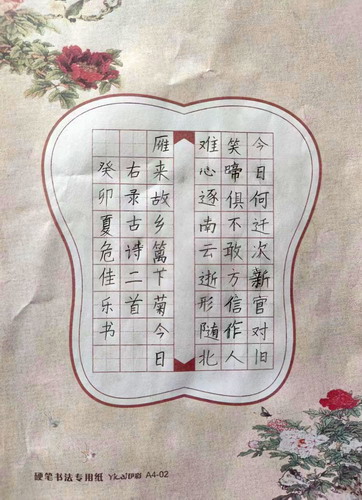 今日何迁次新官对旧
笑啼俱不敢方信作人
难心逐南云逝形随北
雁来故乡篱下菊今日
右录古诗二首
癸卯夏危佳乐书
硬笔书法专用纸 Yicai伊彩 A4-02